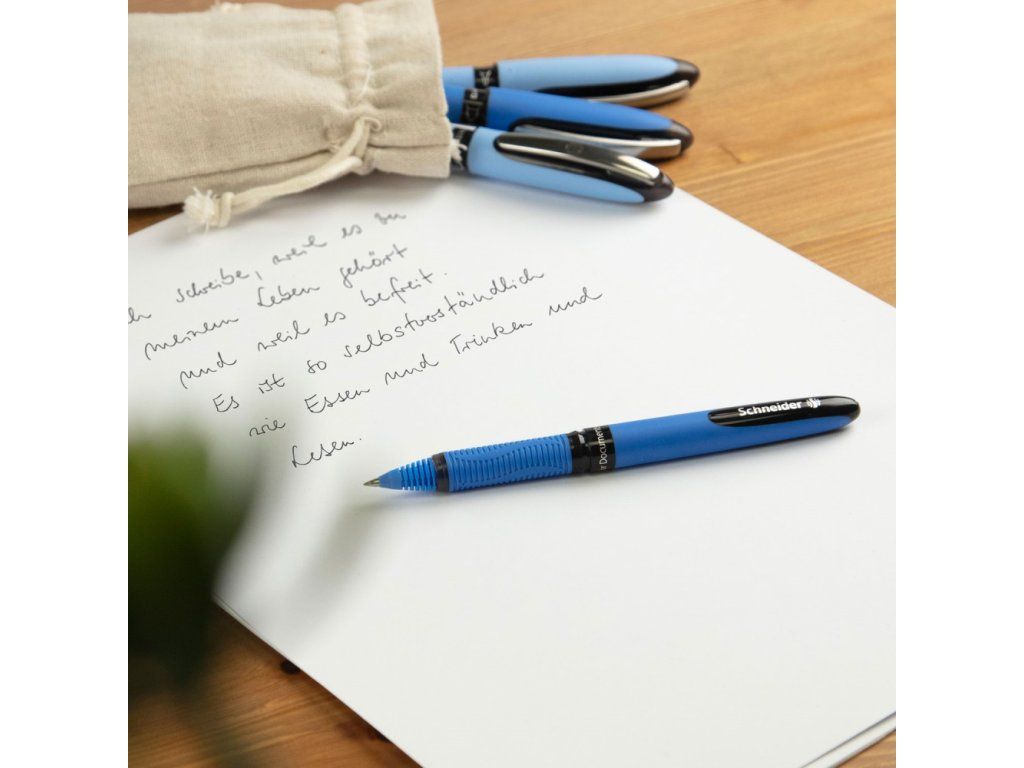 ch schreibe, weil es zu
meinem Leben gehört
und weil es befreit.
Es ist so selbstverständlich
wie Essen und Trinken und
Lesen.
Schneider
r Documen